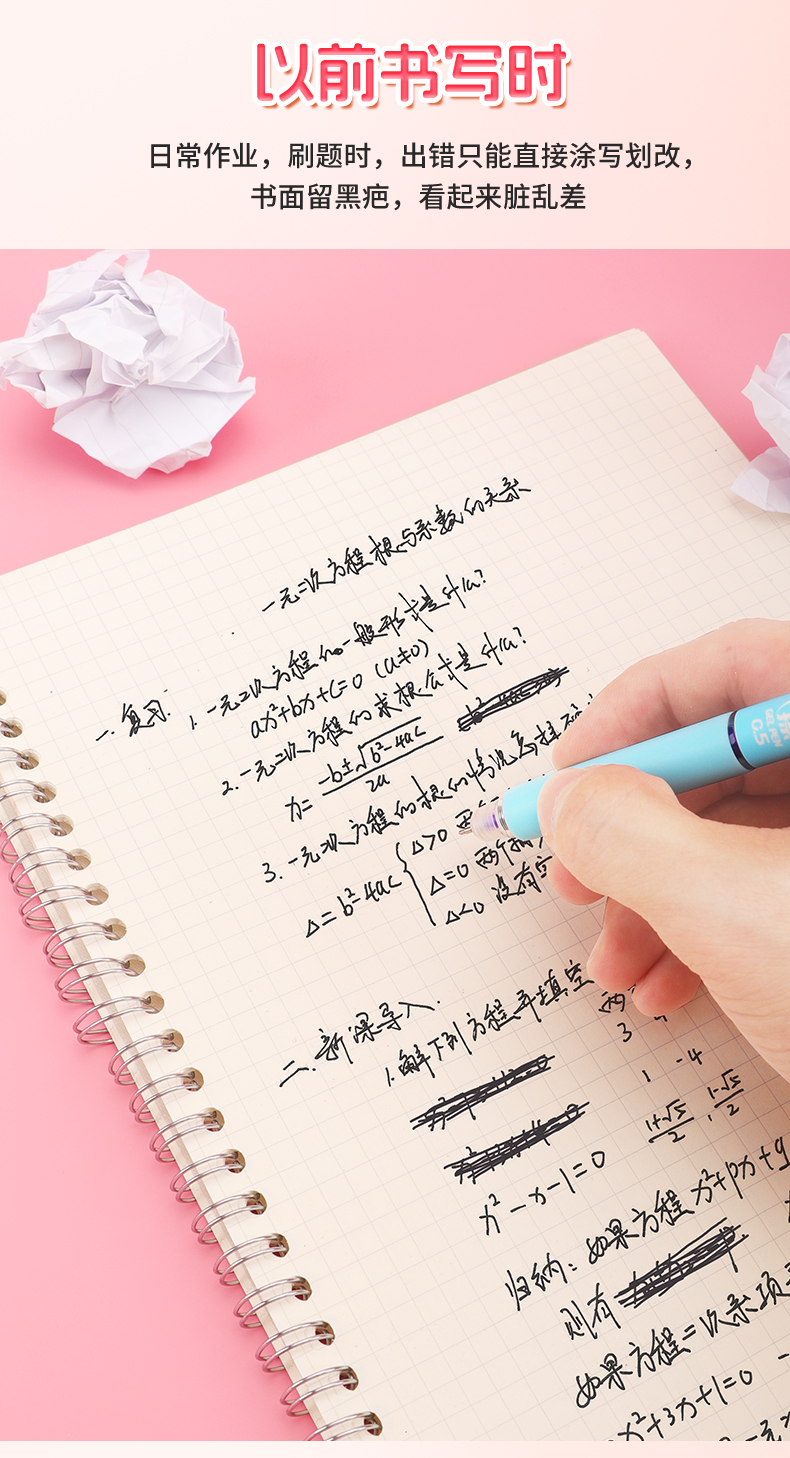 以前书写时
日常作业，刷题时，出错只能直接涂写划改，
书面留黑疤，看起来脏乱差
一元二次方程根与系数的关系
一.复习. 1.一元二次方程的一般形式是什么?
ax²+bx+c=0 (a≠0)
2.一元二次方程的求根公式是什么?
x=-b±√b²-4ac/2a
3.一元二次方程的根的情况怎样确
Δ=b²-4ac { Δ>0 两个
Δ=0 两个相
Δ<0 没有实
二.新课导入.
1.解下列方程并填空
两
3 4
1 -4
x²-x-1=0 1+√5/2 , 1-√5/2
归纳: 如果方程x²+px+q
则有
如果方程二次系项
x²+3x+1=0
GEL PEN
0.5